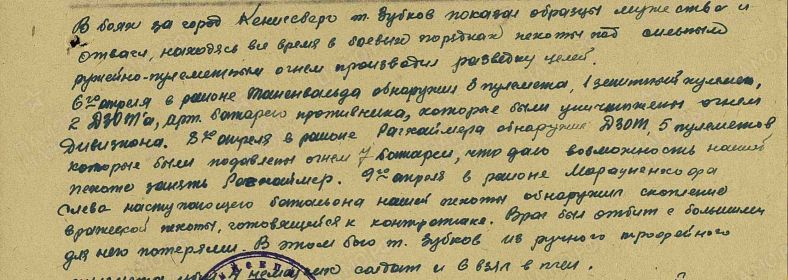 В боях за город Кенигсберг т. Зубков показал образцы мужества и
отваги, находясь все время в боевых порядках пехоты под сильным
ружейно-пулеметным огнем производил разведку целей.
6го апреля в районе Таненвальда обнаружил 3 пулемета, 1 зенитный пулемет,
2 ДЗОТ'а, арт. батарею противника, которые были уничтожены огнем
Дивизиона. 8го апреля в районе Ратсхаймера обнаружил ДЗОТ, 5 пулеметов
которые были подавлены огнем 7 батареи, что дало возможность нашей
пехоте занять Ратсхаймер. 9го апреля в районе Марауненгофа
слева наступающего батальона нашей пехоты обнаружил скопление
вражеской пехоты, готовящейся к контратаке. Враг был отбит с большими
для него потерями. В этом бою т. Зубков из ручного трофейного
солдат и 6 взял в плен.